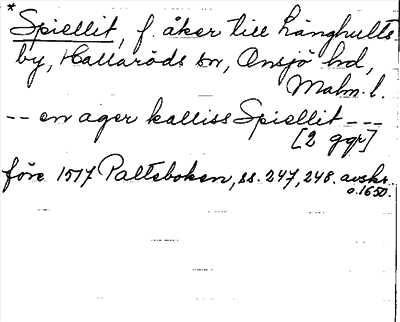 *
Spiellit, f. åker till Länghults
by, Hallaröds sn, Onsjö hd,
Malm. l.
-- en ager kalliss Spiellit ---
[2 ggr]
före 1517 Palteboken, ss. 247, 248. avskr.
o. 1650.